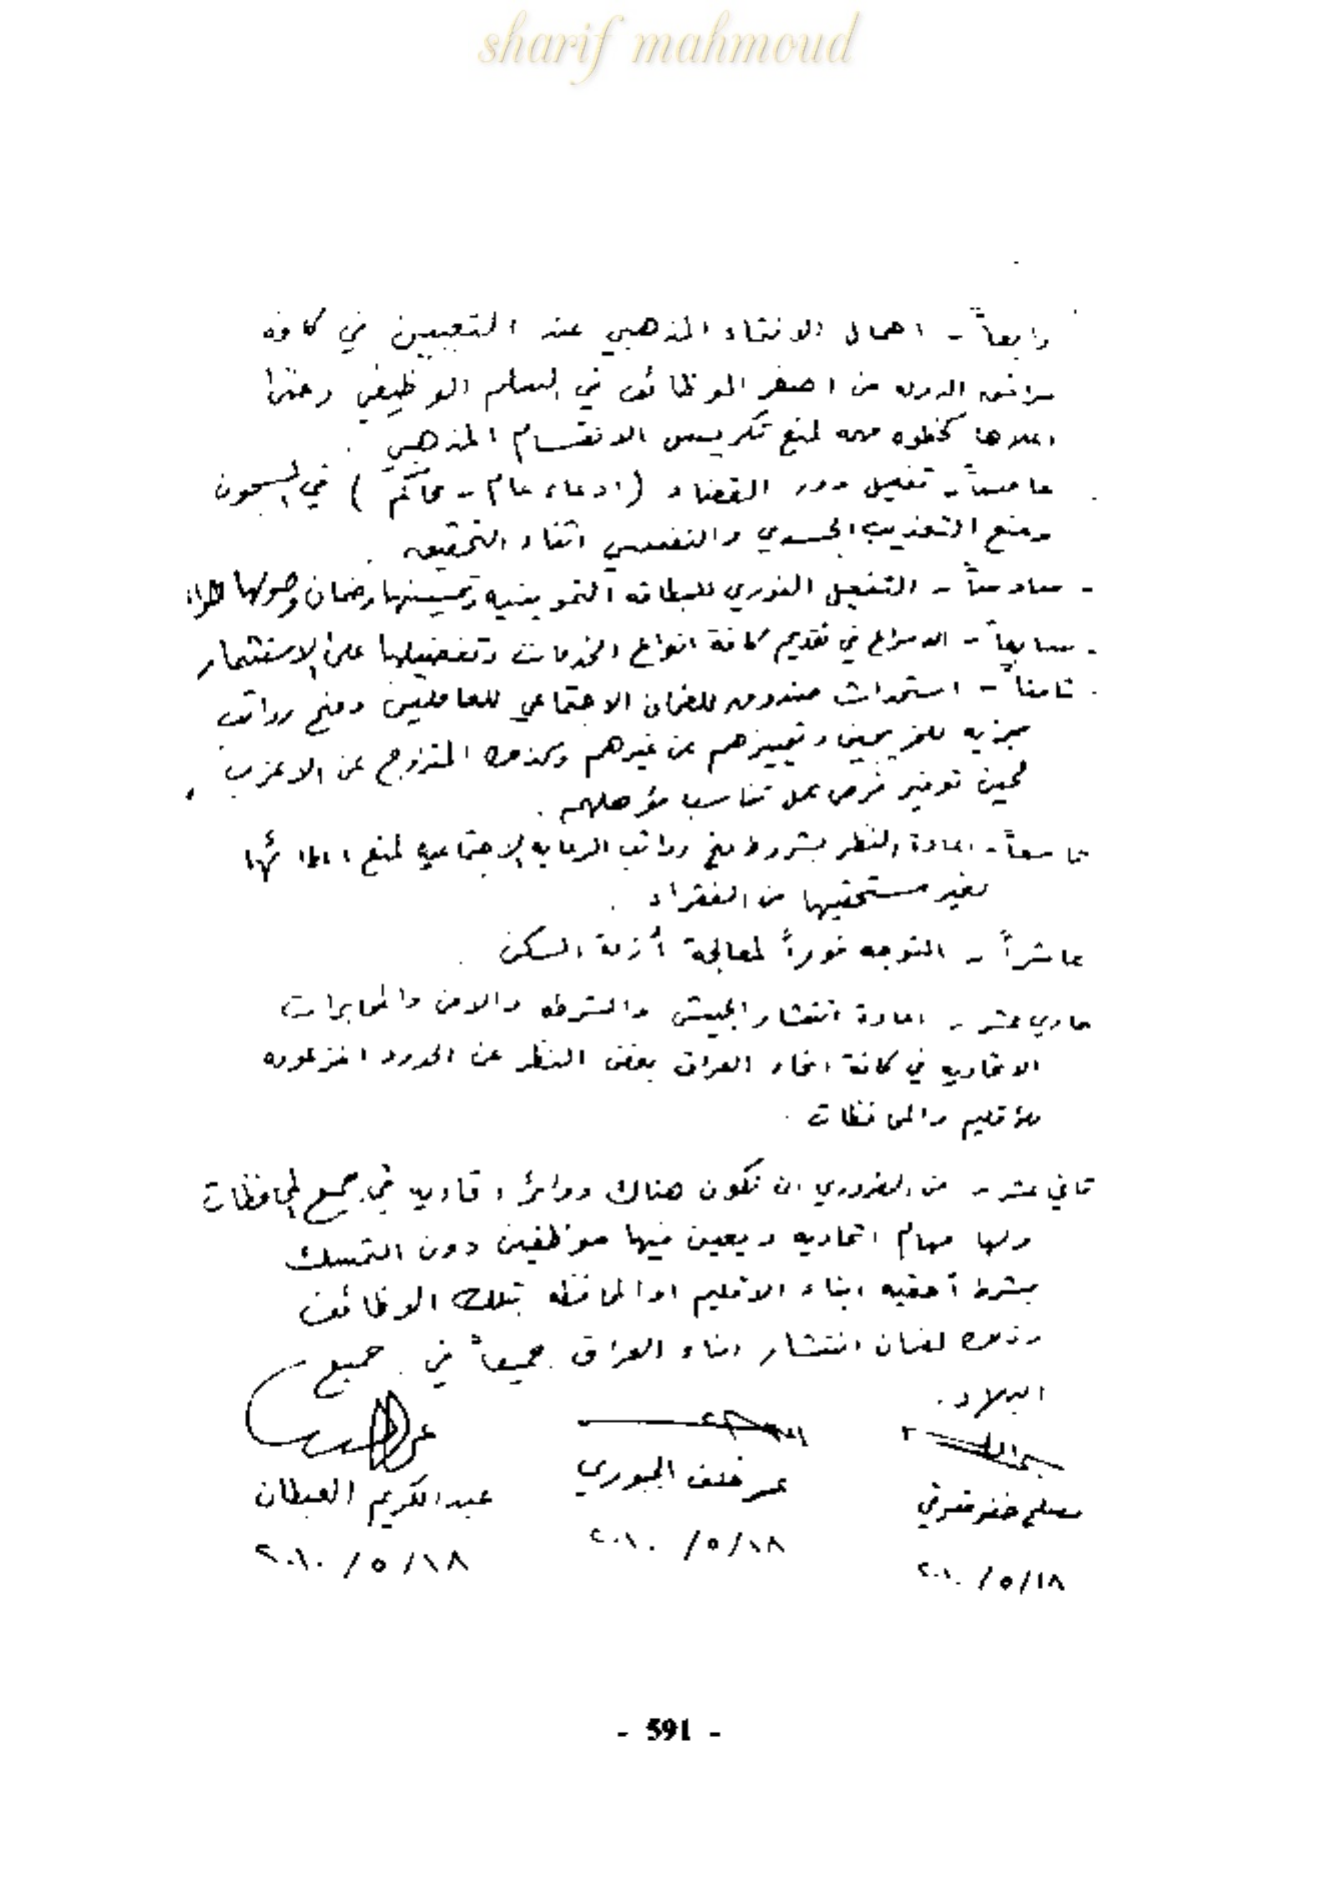 sharif mahmoud
رابعاً - اهمال الانتماء المذهبي عند التعيين في كافه
مرافق الدوله من اصغر الوظائف في السلم الوظيفي وحتى
اعلاها كخطوه مهمه لمنع تكريس الانقسام المذهبي .
خامساً - تفعيل دور القضاء ( ادعاء عام - محاكم ) في السجون
ومنع التعذيب الجسدي والنفسي اثناء التحقيق .
- سادساً - التفعيل الفوري للبطاقه التموينيه وتحسينها وضمان وصولها
- سابعاً - الاسراع في تقديم كافة انواع الخدمات وتفضيلها على الاستثمار
. ثامناً - استحداث صندوق للضمان الاجتماعي للعاطلين ومنح رواتب
مجزيه للخريجين وتمييزهم عن غيرهم وكذلك المتزوج عن الاعزب
لحين توفير فرص عمل تناسب مؤهلهم .
تاسعاً - اعادة النظر بشروط منح رواتب الرعايه الاجتماعيه لمنع اعطائها
لغير مستحقيها من الفقراء .
عاشراً - التوجه فوراً لمعالجة أزمة السكن .
حادي عشر - اعادة انتشار الجيش والشرطه والامن والمخابرات
الاتحاديه في كافة انحاء العراق بغض النظر عن الحدود المزعومه
للأقليم والمحافظات .
ثاني عشر - من الضروري ان تكون هناك دوائر اتحاديه في جميع المحافظات
ولها مهام اتحاديه ويعين فيها موظفين دون التمسك
بشرط أحقيه ابناء الاقليم او المحافظه بتلك الوظائف
وذلك لضمان انتشار ابناء العراق جميعاً في جميع
البلاد .
مصلح خضر عمر خلف الجبوري عبد الكريم العبطان
٢٠١٠/٥/١٨ ٢٠١٠/٥/١٨ ٢٠١٠/٥/١٨
- 591 -